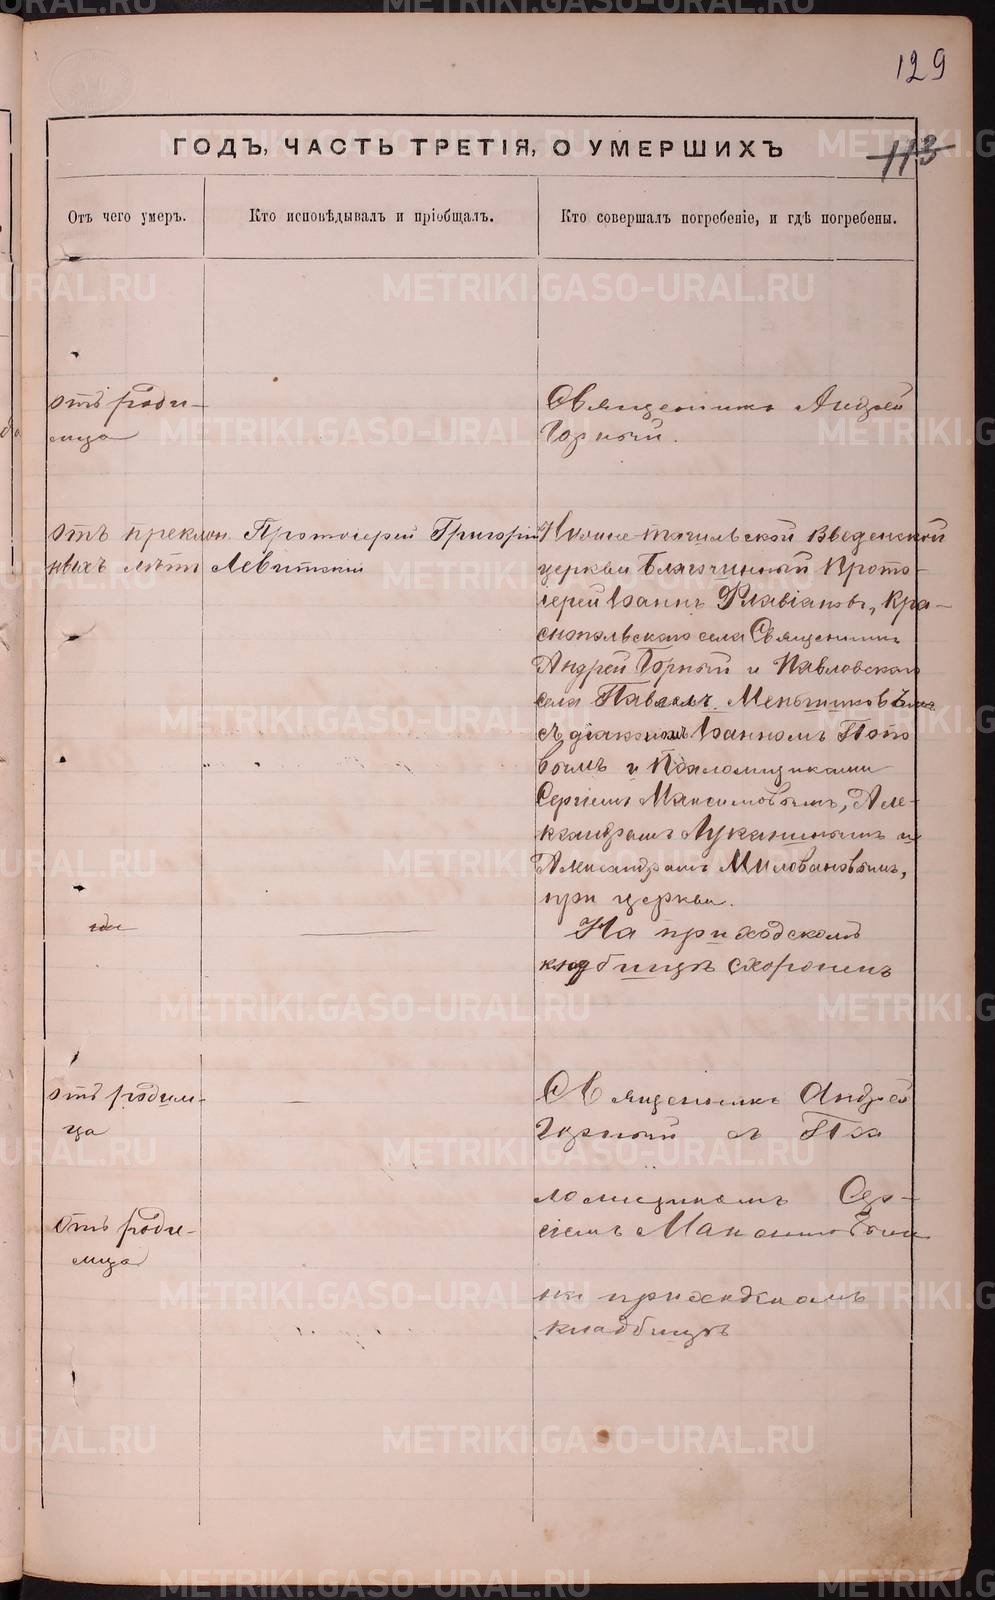 129
ГОДЪ, ЧАСТЬ ТРЕТІЯ, О УМЕРШИХЪ
113
Отъ чего умеръ.
Кто исповѣдывалъ и пріобщалъ.
Кто совершалъ погребеніе, и гдѣ погребены.
отъ роди-
мца
Священникъ Андрей
Горный.
отъ преклон
ныхъ лѣтъ
Протоіерей Григорій
Левитскій
Нижнетагильской Введенской
церкви Благочинный Прото-
іерей Іоаннъ Флавіановъ, Кра-
снопольскаго села Священникъ
Андрей Горный и Павловскаго
села Павелъ Меньшиковъ
съ діакономъ Іоанномъ Попо
вымъ и Псаломщиками
Сергіемъ Максимовымъ, Але-
ксандромъ Луканинымъ и
Александромъ Миловановымъ,
при церкви.
На приходскомъ
кладбищѣ схороненъ
отъ родим-
ца
Священникъ Андрей
Горный съ Пса
ломщикомъ Сер-
гіемъ Максимовымъ
отъ роди-
мца
на приходскомъ
кладбищѣ
METRIKI.GASO-URAL.RU